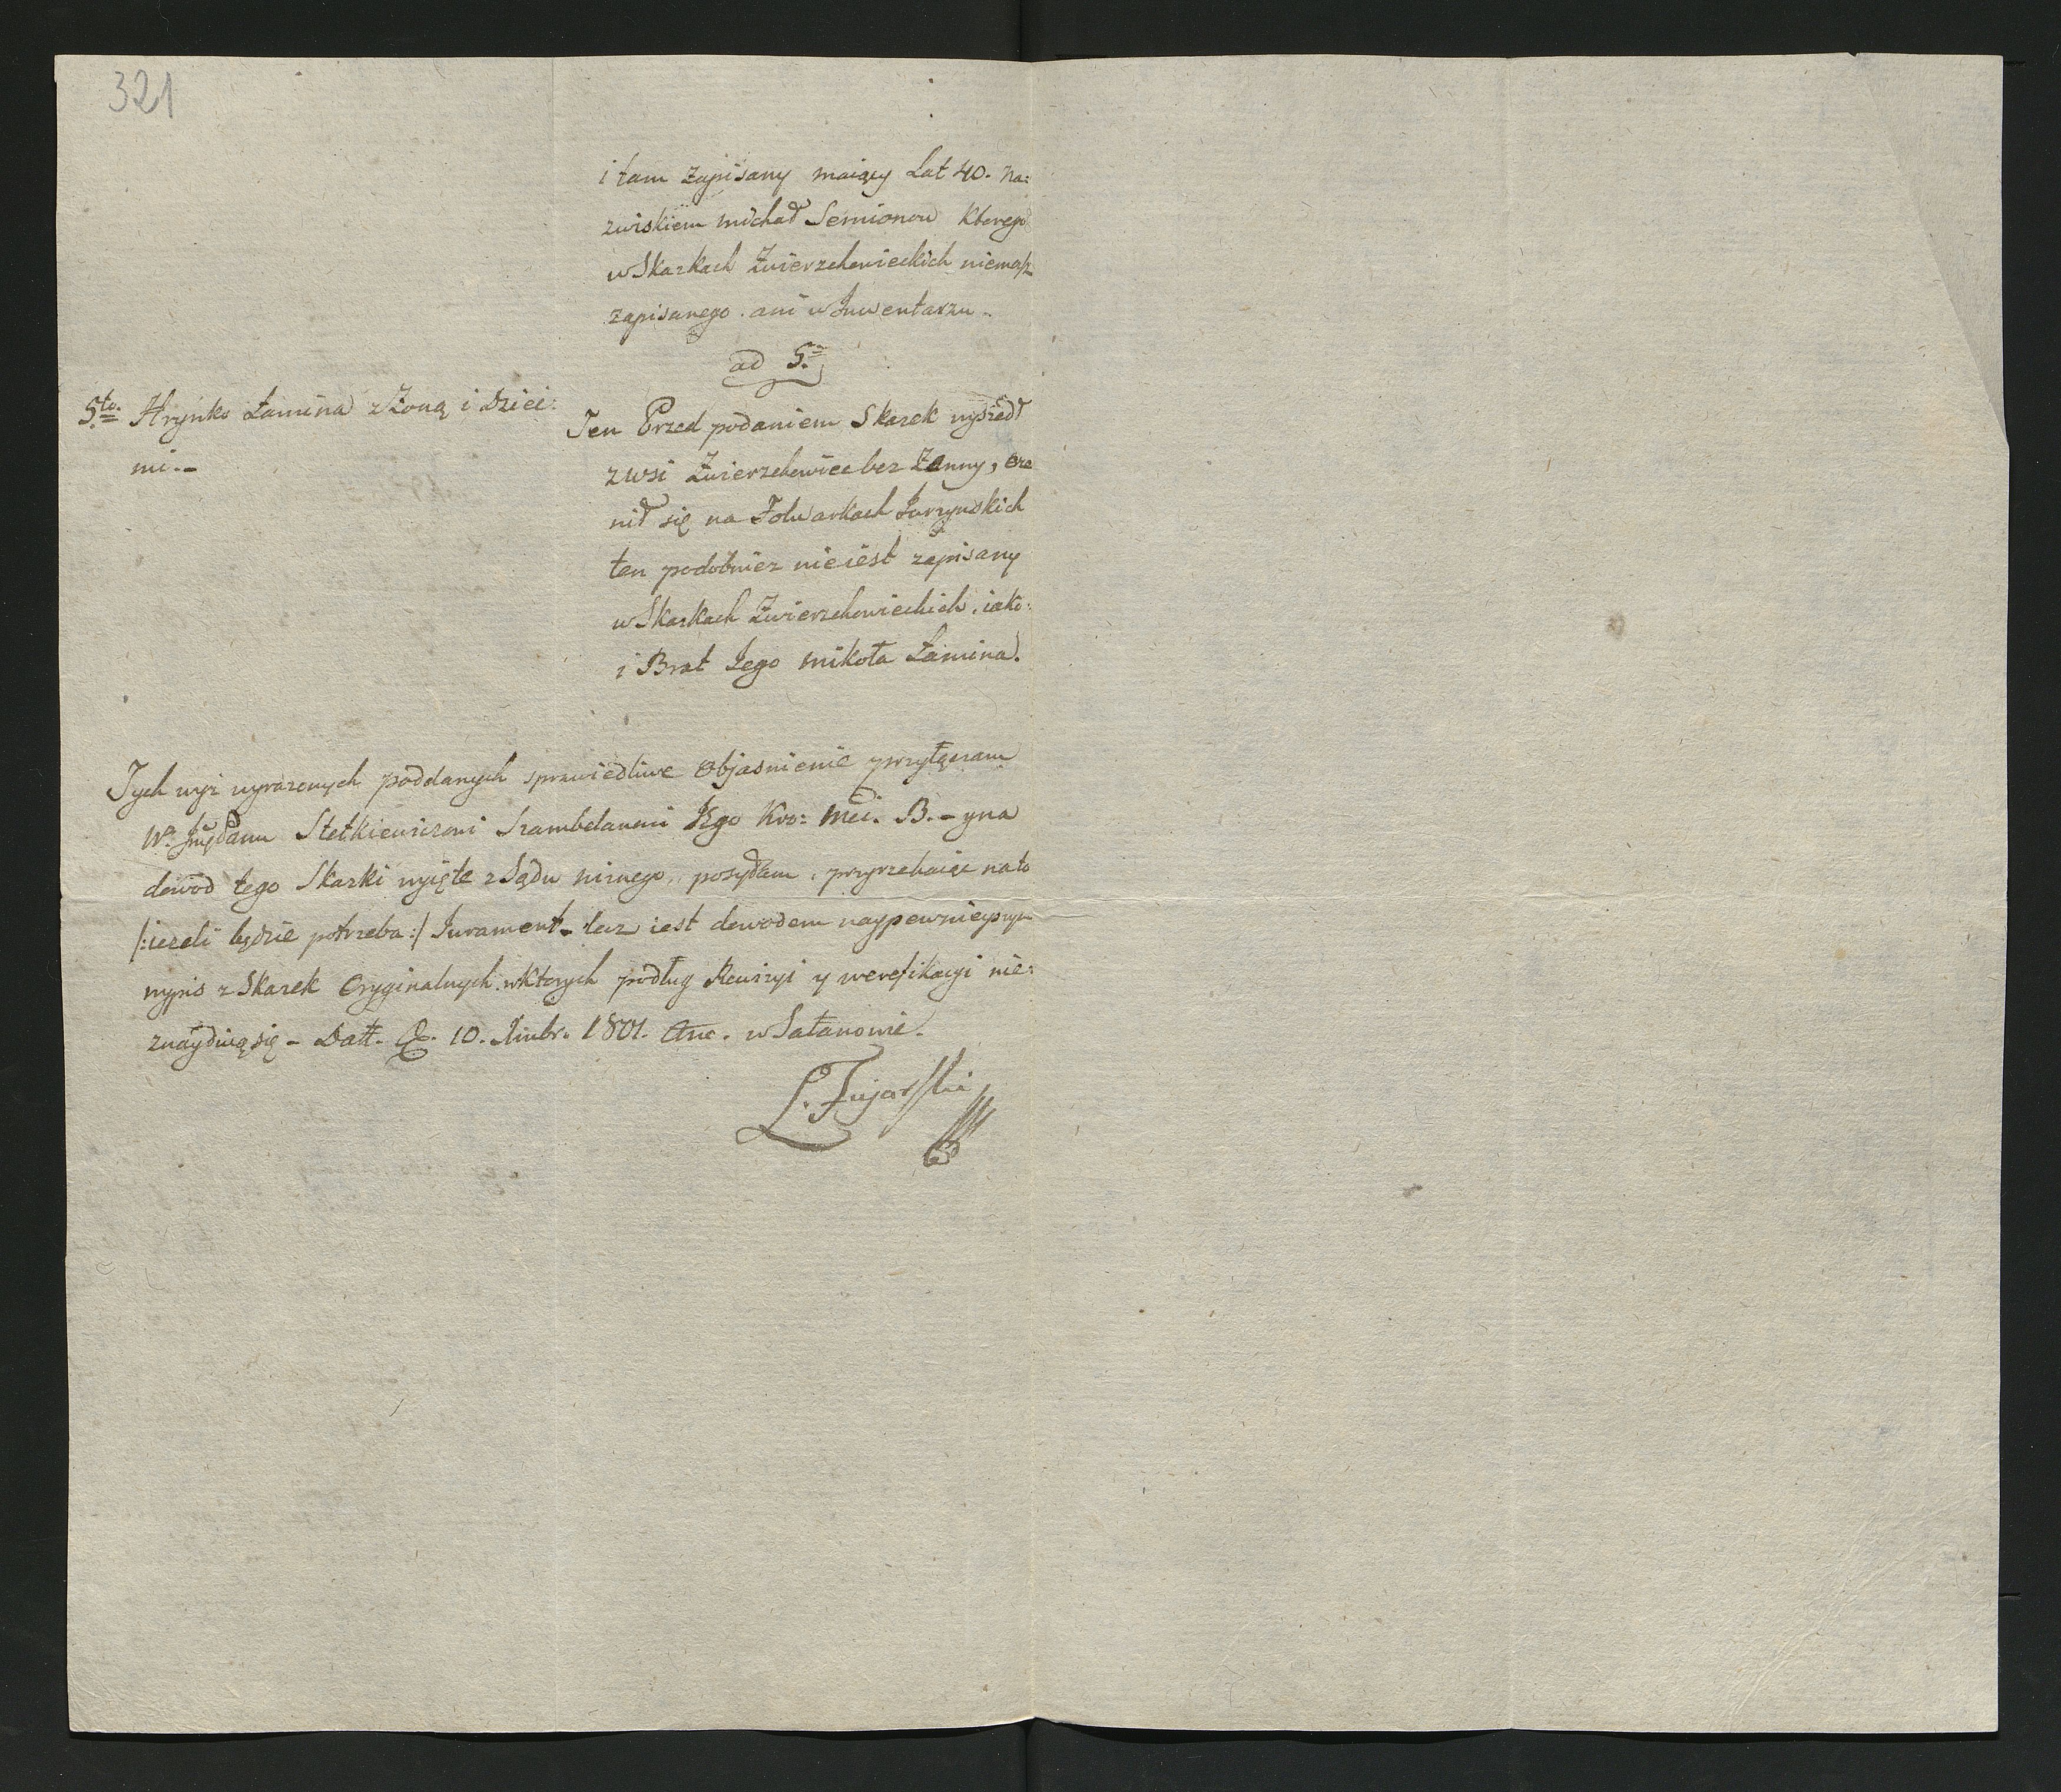 321
i tam zapisany maiący Lat 40. na:
zwiskiem michał Semionow Ktorego
w Skazkach Zwierzchowieckich niemasz
zapisanego. ani w Inwentarzu.
ad 5.
5to. Hryńko Łamina z Żoną i Dzieć:
mi.-
Ten Przed podaniem Skazek wyszedł
z wsi Zwierzchowiec bez Żonny, oże
nił się na Folwarkach Jurzynskich
ten podobniez nieiest zapisany
w Skazkach Zwierzchowieckich. iako.
i Brat Jego mikoła Łamina.
Tych wyż wyrazonych poddanych sprawiedliwe Objasnienie przyłączam
Stetkiewiczowi Szambelanowi Jego Kro: Mci. B. - y na
dowod tego Skazki wyięte z Sądu niznego, posyłam. przyrzekaiąc na to
/:iezeli będzie potrzeba:/ Jurament - lecz iest dowodem naypewnieyszym
wypis z Skazek Oryginalnych. w Ktorych podług Rewizyi y werefikacyi nie:
znaydują się - Datt. D. 10. Xmbr. 1801. Ano. w Satanowie.